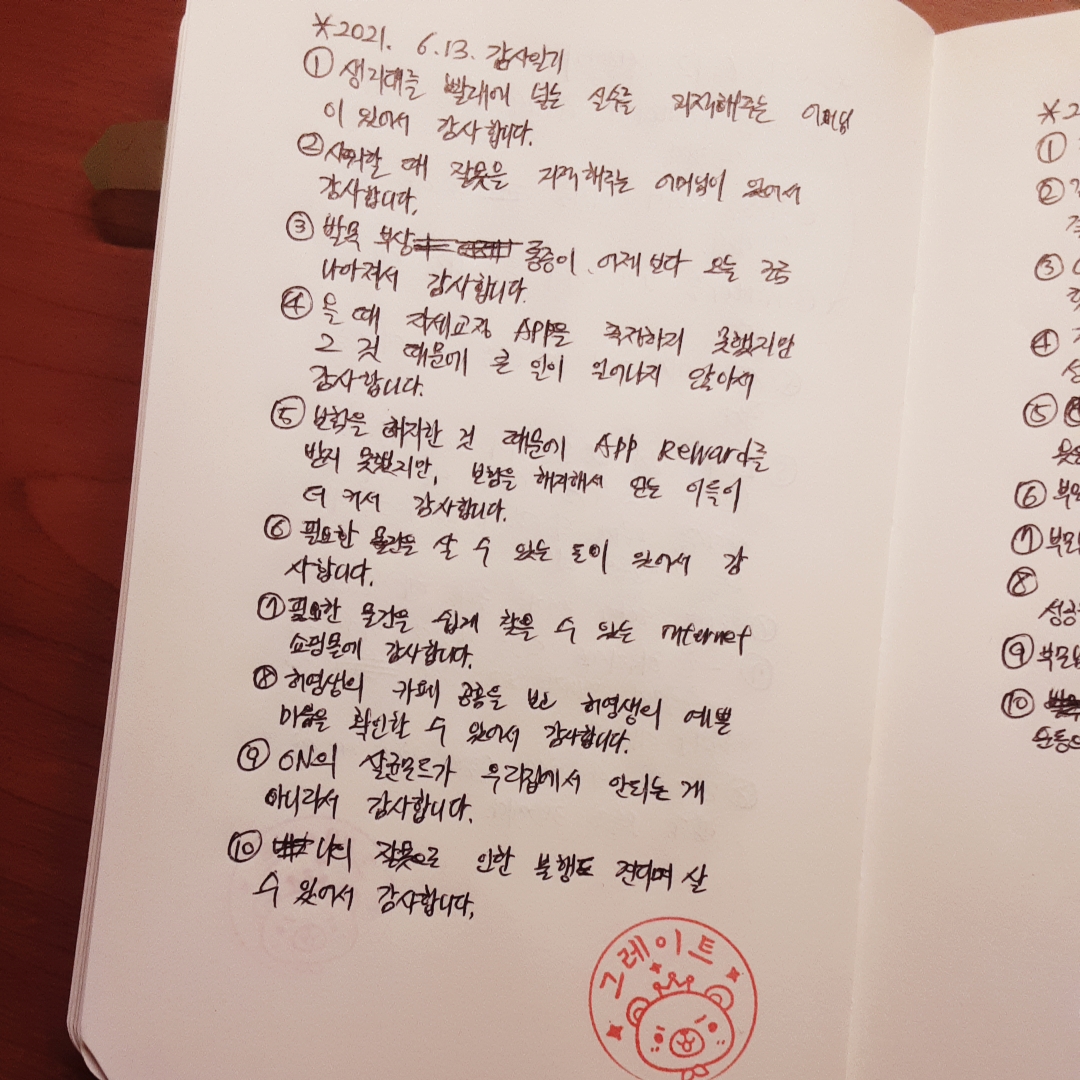 *2021. 6.13. 감사일기
① 생리대를 빨래에 넣는 실수를 지적해주는 어머님
이 있어서 감사합니다.
② 샤워할 때 잘못을 지적해주는 어머님이 있어서
감사합니다.
③ 발목 부상 통증이 어제보다 오늘 조금
나아져서 감사합니다.
④ 올 때 자세교정 APP을 측정하지 못했지만
그 것 때문에 큰 일이 일어나지 않아서
감사합니다.
⑤ 보험을 해지한 것 때문에 APP Reward를
받지 못했지만, 보험을 해지해서 얻는 이득이
더 커서 감사합니다.
⑥ 필요한 물건을 살 수 있는 돈이 있어서 감
사합니다.
⑦ 필요한 물건을 쉽게 찾을 수 있는 Internet
쇼핑몰에 감사합니다.
⑧ 허영생의 카페 공홈을 보고 허영생의 예쁜
마음을 확인할 수 있어서 감사합니다.
⑨ ON의 살균모드가 우리집에서 안되는 게
아니라서 감사합니다.
⑩ 나의 잘못으로 인한 불행도 견디며 살
수 있어서 감사합니다.
그레이트
*2
①
②
③
④
⑤
⑥ 부모
⑦ 부모
⑧
성공
⑨ 부모님
⑩
운동으